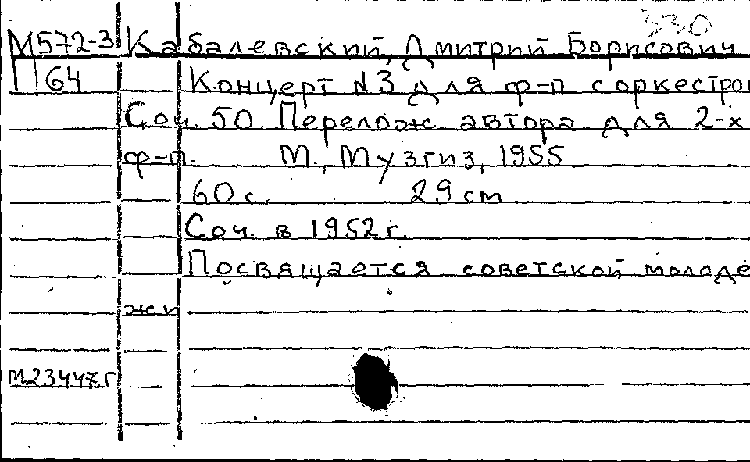 330
М572-3 Кабалевский, Дмитрий Борисович
П64 Концерт №3 для ф-п с оркестром
Соч. 50 Перелож. автора для 2-х
ф-п. М., Музгиз, 1955
60 с. 29 cm
Соч. в 1952 г.
Посвящается советской молоде
жи
М23447г